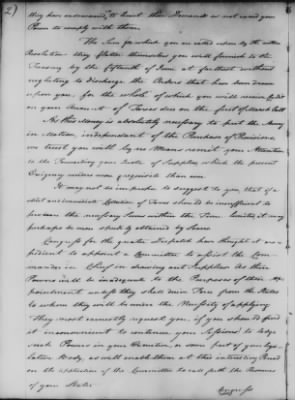 2)
they have endeavoured, to limit their Demands as not exceed your
Power to comply with them
The Sum for which you are called upon by the
Resolution they flatter themselves you will furnish to the
Treasury by the fifteenth of June at farthest without
neglecting to discharge the Orders that have been drawn
upon you, for the whole of which you will remain
on your Account of Taxes due on the first of March last
As this Money is absolutely necessary to put the Army
in Motion, independent of the Purchase of Provisions,
we trust you will by no Means remit your Attention
to the forwarding your Quota of Supplies which the present
Exigency renders more requisite than ever
It may not be improper to suggest to you, that if a
strict and immediate Collection of Taxes should be insufficient to
procure the necessary Sums within the Time limited it may
perhaps be more speedily attained by Loans
Congress for the greater Dispatch have thought it ex-
pedient to appoint a Committee to assist the Com-
mander in Chief in drawing out Supplies As their
Powers will be inadequate to the Purposes of their ap-
pointment unless they shall derive from the States
to whom they will be under the Necessity of applying
They most earnestly request you, if you should find
it inconvenient to continue your Sessions to lodge
such Powers in your Executive, or some part of your Legis-
lative Body, as will enable them at this interesting Period
on the application of the Committee to call forth the Resources
of your State
Congress